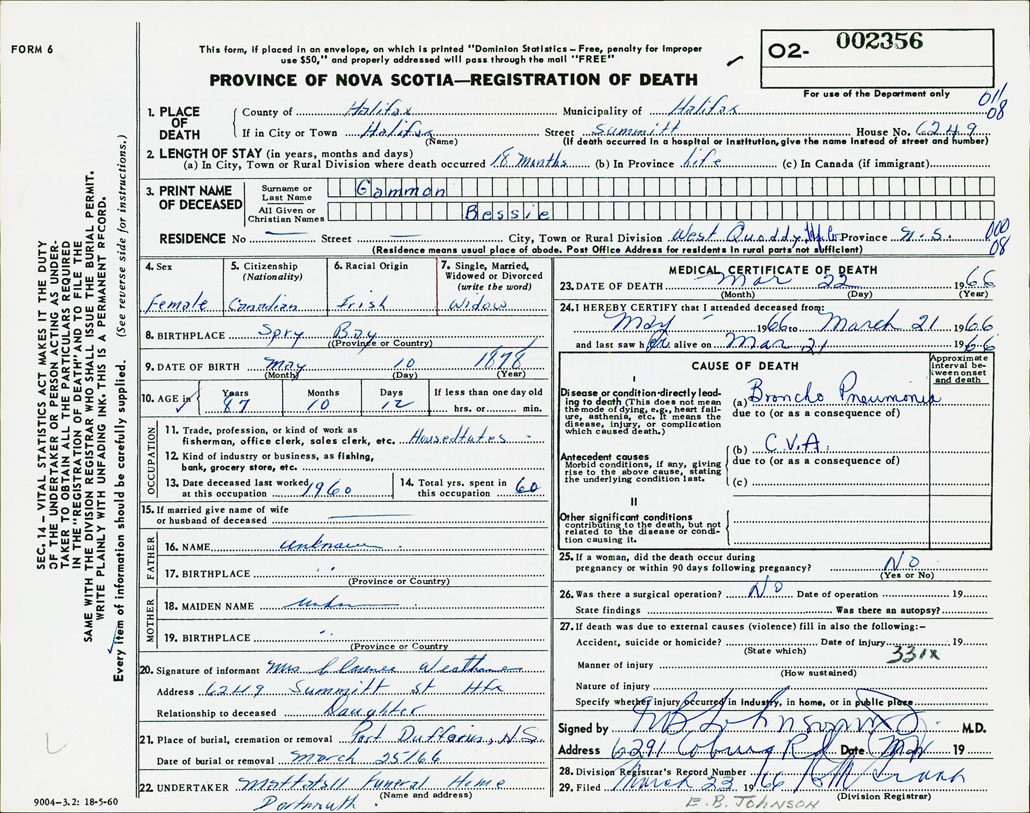 FORM 6
This form, if placed in an envelope, on which is printed "Dominion Statistics – Free, penalty for improper
use $50," and properly addressed will pass through the mail "FREE"
PROVINCE OF NOVA SCOTIA—REGISTRATION OF DEATH
O2- 002356
For use of the Department only
011
08
1. PLACE OF DEATH
County of Halifax Municipality of Halifax
If in City or Town Halifax Street Summitt House No. 6249
(Name) (If death occurred in a hospital or institution, give the name instead of street and number)
2. LENGTH OF STAY (in years, months and days)
(a) In City, Town or Rural Division where death occurred 18 months (b) In Province life (c) In Canada (if immigrant)
3. PRINT NAME OF DECEASED
Surname or Last Name Gammon
All Given or Christian Names Bessie
RESIDENCE No Street City, Town or Rural Division West Quoddy, Province N.S.
000
08
(Residence means usual place of abode. Post Office Address for residents in rural parts not sufficient)
4. Sex Female
5. Citizenship (Nationality) Canadian
6. Racial Origin Irish
7. Single, Married, Widowed or Divorced (write the word) Widow
8. BIRTHPLACE Spry Bay
(Province or Country)
9. DATE OF BIRTH May 10 1878
(Month) (Day) (Year)
10. AGE in Years 87 Months 10 Days 12 If less than one day old hrs. or min.
OCCUPATION
11. Trade, profession, or kind of work as
fisherman, office clerk, sales clerk, etc.
12. Kind of industry or business, as fishing,
bank, grocery store, etc.
13. Date deceased last worked at this occupation 1960
14. Total yrs. spent in this occupation 60
15. If married give name of wife
or husband of deceased
FATHER
16. NAME unknown
17. BIRTHPLACE "
(Province or Country)
MOTHER
18. MAIDEN NAME
19. BIRTHPLACE "
(Province or Country
20. Signature of informant Mrs
Address 6249 Summitt St Hfx
Relationship to deceased Daughter
21. Place of burial, cremation or removal Port Dufferin, N.S.
Date of burial or removal March 25/66
22. UNDERTAKER Mattatall Funeral Home
(Name and address)
Dartmouth
9004-3.2: 18-5-60
MEDICAL CERTIFICATE OF DEATH
23. DATE OF DEATH Mar 22 1966
(Month) (Day) (Year)
24. I HEREBY CERTIFY that I attended deceased from:
May 1966 to March 21 1966
and last saw her alive on Mar 21 1966
CAUSE OF DEATH
Approximate interval between onset and death
I
Disease or condition directly leading to death (This does not mean the mode of dying, e.g., heart failure, asthenia, etc. It means the disease, injury, or complication which caused death.)
(a) Broncho Pneumonia
due to (or as a consequence of)
Antecedent causes
Morbid conditions, if any, giving rise to the above cause, stating the underlying condition last.
(b) C.V.A.
due to (or as a consequence of)
(c)
II
Other significant conditions
contributing to the death, but not related to the disease or condition causing it.
25. If a woman, did the death occur during
pregnancy or within 90 days following pregnancy? NO
(Yes or No)
26. Was there a surgical operation? NO Date of operation 19
State findings Was there an autopsy?
27. If death was due to external causes (violence) fill in also the following:–
Accident, suicide or homicide? Date of injury 19
(State which) 331X
Manner of injury
(How sustained)
Nature of injury
Specify whether injury occurred in industry, in home, or in public place
Signed by EB Johnson M.D.
Address 6291 Coburg Rd Date Mar 19
28. Division Registrar's Record Number
29. Filed March 23 1966
(Division Registrar)
E.B. JOHNSON
SEC. 14 – VITAL STATISTICS ACT MAKES IT THE DUTY
OF THE UNDERTAKER OR PERSON ACTING AS UNDER-
TAKER TO OBTAIN ALL THE PARTICULARS REQUIRED
IN THE "REGISTRATION OF DEATH" AND TO FILE THE
SAME WITH THE DIVISION REGISTRAR WHO SHALL ISSUE THE BURIAL PERMIT.
WRITE PLAINLY WITH UNFADING INK. THIS IS A PERMANENT RECORD.
Every item of information should be carefully supplied. (See reverse side for instructions.)